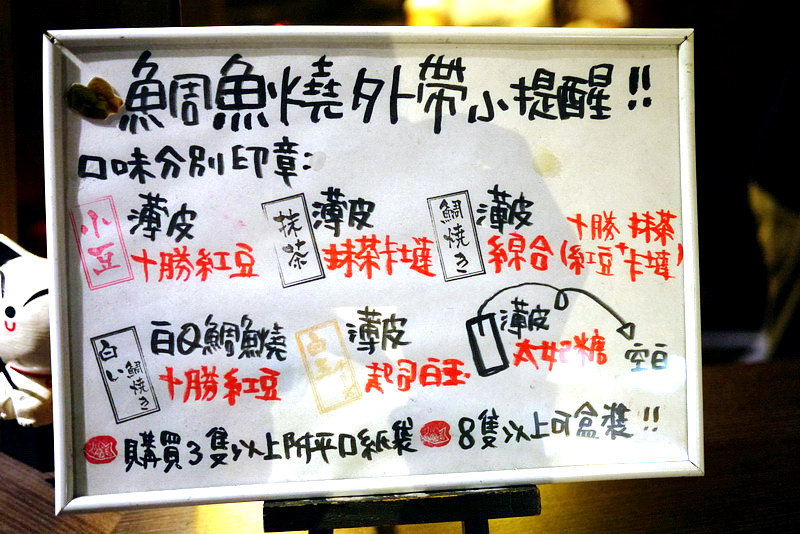 鯛魚燒外帶小提醒!!
口味分別印章:
小豆 薄皮 十勝紅豆
抹茶 薄皮 抹茶卡士達
鯛焼き 薄皮 綜合(十勝紅豆+抹茶卡士達)
白い鯛焼き 白Q鯛魚燒 十勝紅豆
白玉チーズ 薄皮 起司白玉
薄皮 太妃糖 空白
購買3隻以上附平口紙袋 8隻以上可盒裝!!